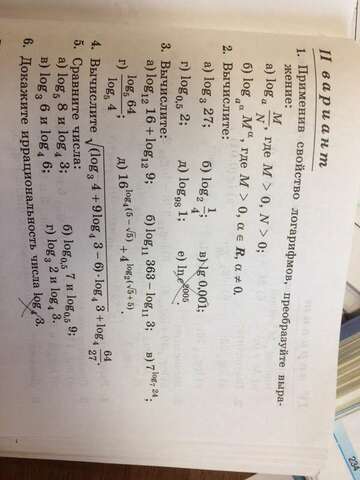 II вариант
1. Применив свойство логарифмов, преобразуйте выра-
жение:
а) log_a M/N, где M > 0, N > 0;
б) log_{a^α} M^α, где M > 0, α ∈ R, α ≠ 0.
2. Вычислите:
а) log_3 27; б) log_2 1/4; в) lg 0,001;
г) log_{0,5} 2; д) log_{98} 1; е) ln e^{2005}
3. Вычислите:
а) log_{12} 16 + log_{12} 9; б) log_{11} 363 – log_{11} 3; в) 7^{log_7 24};
г) log_5 64 / log_5 4; д) 16^{log_4(5 – √5)} + 4^{log_2(√5 + 5)}.
4. Вычислите √((log_3 4 + 9 log_4 3 – 6) · log_4 3) + log_4 64/27.
5. Сравните числа:
а) log_5 8 и log_4 3; б) log_{0,5} 7 и log_{0,5} 9;
в) log_3 6 и log_4 6; г) log_3 2 и log_4 3.
6. Докажите иррациональность числа log_4 3.
234